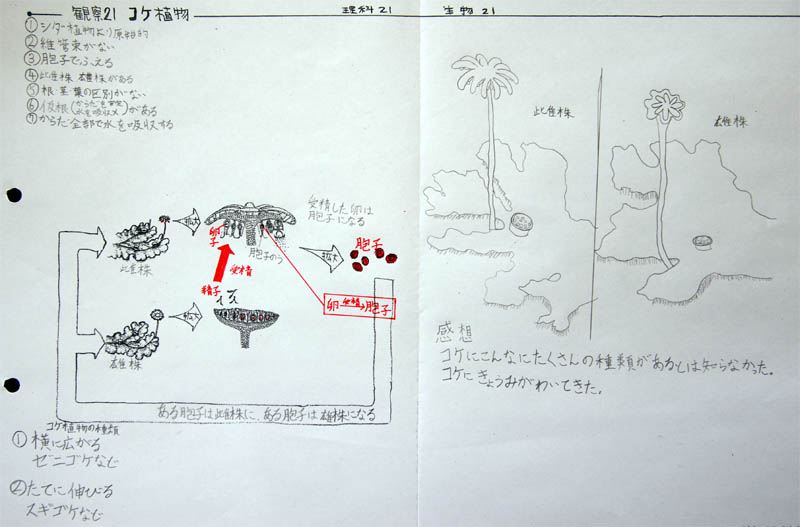 観察21 コケ植物
理科21
生物21
① シダ植物より原始的
② 維管束がない
③ 胞子でふえる
④ 雌株 雄株がある
⑤ 根・茎・葉の区別がない
⑥ 仮根(からだを固定 水を吸収×)がある
⑦ からだ全部で水を吸収する
雌株
拡大
卵子
胞子のう
受精した卵は
胞子になる
拡大
胞子
受精
精子
卵 受精→ 胞子
雄株
拡大
ある胞子は雌株に、ある胞子は雄株になる
コケ植物の種類
① 横に広がる
ゼニゴケなど
② たてに伸びる
スギゴケなど
雌株
雄株
感想
コケにこんなにたくさんの種類があるとは知らなかった。
コケにきょうみがわいてきた。